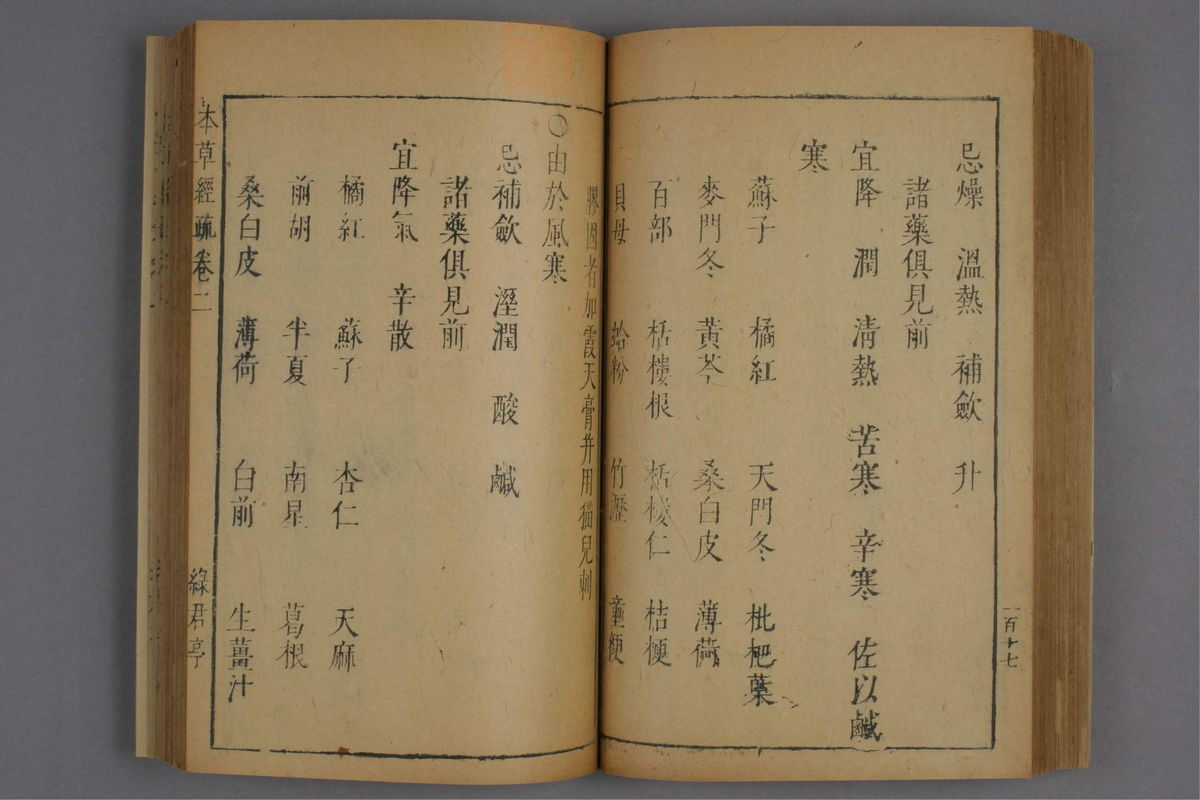 忌燥　溫熱　補斂　升
諸藥俱見前
宜降　潤　淸熱　苦寒　辛寒　佐以鹹
寒
蘇子　橘紅　天門冬　枇杷葉
麥門冬　黃芩　桑白皮　薄荷
百部　栝樓根　栝樓仁　桔梗
貝母　蛤粉　竹瀝　童便
一百十七
膠固者加霞天膏并用猫兒刺
○由於風寒
忌補斂　溼潤　酸　鹹
諸藥俱見前
宜降氣　辛散
橘紅　蘇子　杏仁　天麻
前胡　半夏　南星　葛根
桑白皮　薄荷　白前　生薑汁
本草經疏卷二　綠君亭